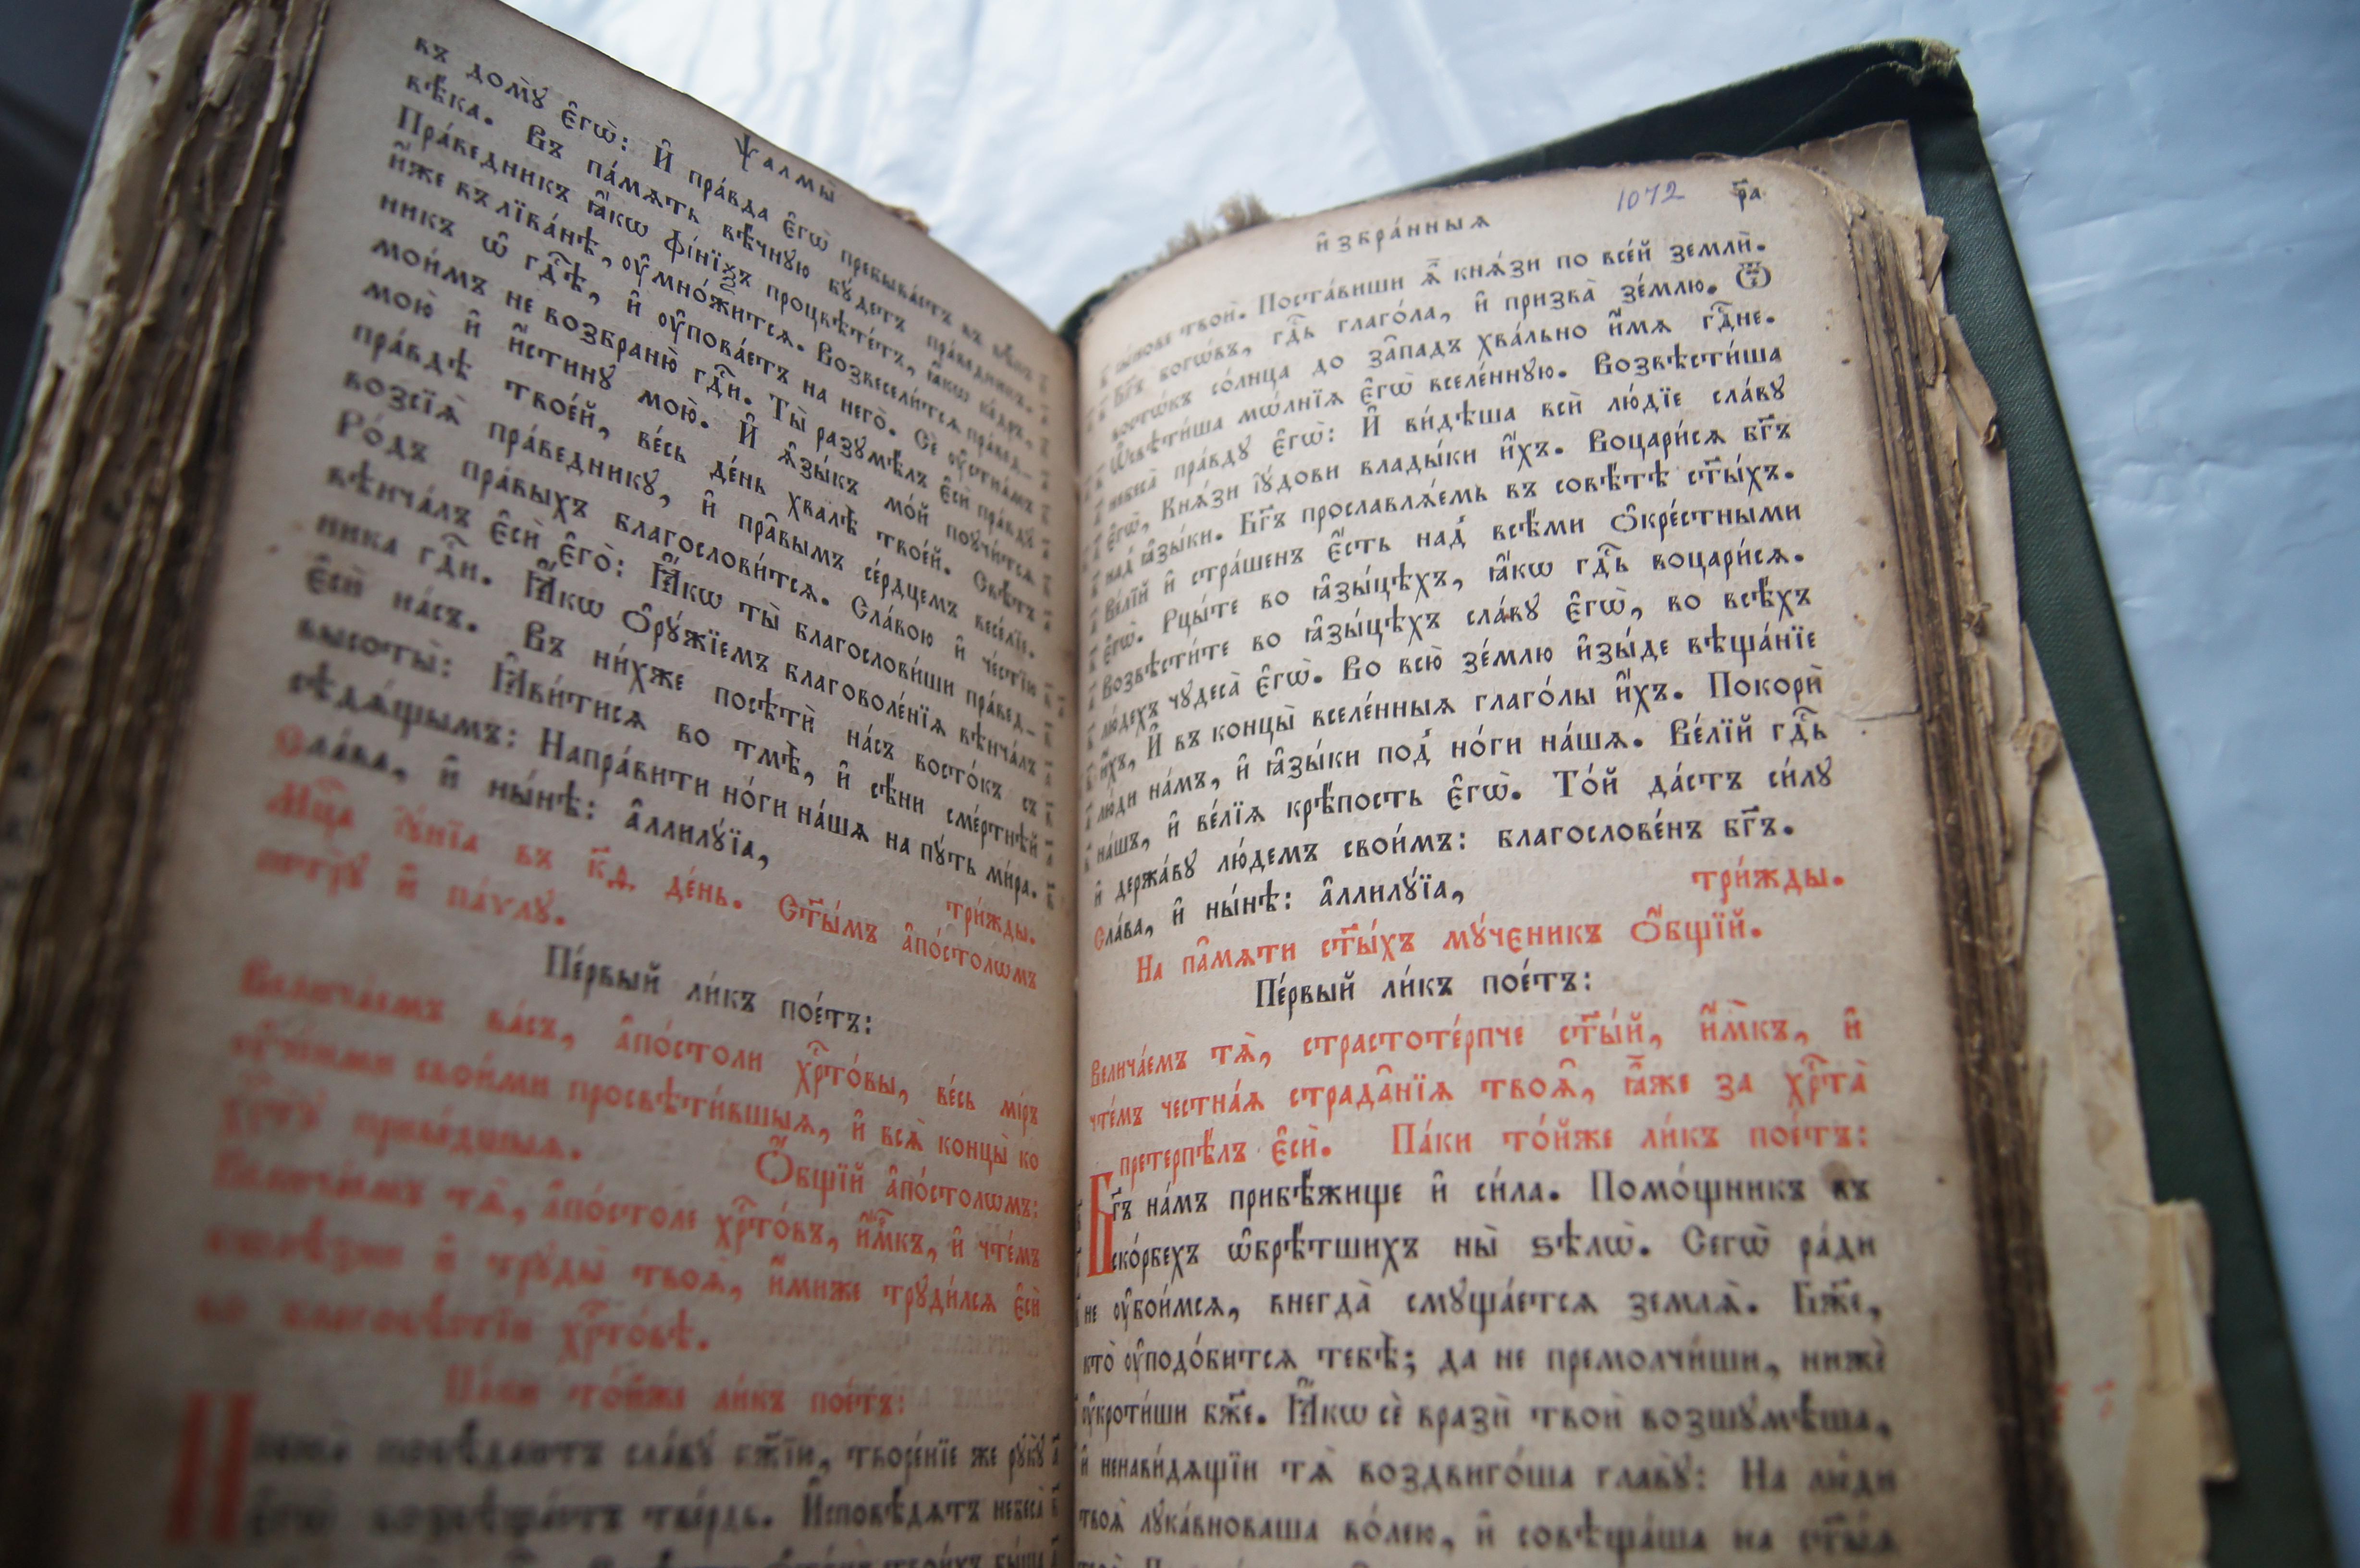 Ѱалмы̀
въ домꙋ̀ є҆гѡ̀: И҆ пра́вда є҆гѡ̀ пребыва́етъ въ вѣ́къ
вѣ́ка. Въ па́мѧть вѣ́чную бꙋ́детъ пра́ведникъ.
Пра́ведникъ ꙗ҆́кѡ фі́нїѯъ процвѣте́тъ, ꙗ҆́кѡ ке́дръ,
и҆́же въ лїва́нѣ, ᲂу҆мно́жится. Возвесели́тся пра́вед-
никъ ѡ҆ гдⷭ҇ѣ, и҆ ᲂу҆пова́етъ на него̀. Сѐ ᲂу҆стна́мъ
мои́мъ не возбраню̀ гдⷭ҇и. Ты̀ разꙋмѣ́лъ є҆сѝ пра́вдꙋ
мою̀ и҆ и҆́стинꙋ мою̀. И҆ ѧ҆зы́къ мо́й поꙋчи́тся
пра́вдѣ твое́й, ве́сь де́нь хвалѣ̀ твое́й. Свѣ́тъ
возсїѧ̀ пра́ведникꙋ, и҆ пра̑вымъ се́рдцемъ весе́лїе.
Ро́дъ пра́выхъ благослови́тся. Сла́вою и҆ че́стїю
вѣнча́лъ є҆сѝ є҆го̀: Ꙗ҆́кѡ ты̀ благослови́ши пра́вед-
ника гдⷭ҇и. Ꙗ҆́кѡ ѻ҆рꙋ́жїемъ благоволе́нїѧ вѣнча́лъ
є҆сѝ на́съ. Въ ни́хже посѣтѝ на́съ восто́къ съ
высоты̀: Ꙗ҆ви́тисѧ во тмѣ̀, и҆ сѣ́ни сме́ртнѣй
сѣдѧ́щымъ: Напра́вити но́ги на́шѧ на пꙋ́ть ми́ра.
Сла́ва, и҆ ны́нѣ: а҆ллилꙋ́їа, три́жды.
Мцⷭ҇а і҆ꙋ́нїа въ к҃д де́нь. Ст҃ы́мъ а҆по́столѡмъ
петрꙋ̀ и҆ па́ѵлꙋ.
Пе́рвый ли́къ пое́тъ:
Велича́емъ ва́съ, а҆по́столи хрⷭ҇то́вы, ве́сь мі́ръ
ᲂу҆че́ньми свои́ми просвѣти́вшыѧ, и҆ всѧ̀ концы̀ ко
хрⷭ҇тꙋ̀ приве́дшыѧ. Ѻ҆́бщїй а҆по́столѡмъ:
Велича́емъ тѧ̀, а҆по́столе хрⷭ҇то́въ, и҆́м҃къ, и҆ чте́мъ
болѣ̑зни и҆ трꙋды̀ твоѧ̀, и҆́миже трꙋди́лсѧ є҆сѝ
во благовѣ́стїи хрⷭ҇то́вѣ.
Па́ки то́йже ли́къ пое́тъ:
Небеса̀ повѣ́даютъ сла́вꙋ бж҃їю, творе́нїе же рꙋкꙋ̀
є҆гѡ̀ возвѣща́етъ тве́рдь. И҆сповѣ́дѧтъ небеса̀
и҆збра́нныѧ 1072 р҃а
сы́нове твоѝ. Поста́виши ѧ҆̀ кнѧ́зи по все́й землѝ.
Бг҃ъ богѡ́въ, гдⷭ҇ь глаго́ла, и҆ призва̀ зе́млю. Ѿ
восто̑къ со́лнца до за̑падъ хва́льно и҆́мѧ гдⷭ҇не.
Ѡ҆свѣти́ша мѡ́лнїѧ є҆гѡ̀ вселе́ннꙋю. Возвѣсти́ша
небеса̀ пра́вдꙋ є҆гѡ̀: И҆ ви́дѣша всѝ лю́дїе сла́вꙋ
є҆гѡ̀, Кнѧ́зи і҆ꙋ́дови влады́ки и҆́хъ. Воцари́сѧ бг҃ъ
над̾ ꙗ҆зы́ки. Бг҃ъ прославлѧ́емь въ совѣ́тѣ ст҃ы́хъ.
Ве́лїй и҆ стра́шенъ є҆́сть над̾ всѣ́ми ѻ҆кре́стными
є҆гѡ̀. Рцы́те во ꙗ҆зы́цѣхъ, ꙗ҆́кѡ гдⷭ҇ь воцари́сѧ.
Возвѣсти́те во ꙗ҆зы́цѣхъ сла́вꙋ є҆гѡ̀, во всѣ́хъ
лю́дехъ чꙋдеса̀ є҆гѡ̀. Во всю̀ зе́млю и҆зы́де вѣща́нїе
и҆́хъ, И҆ въ концы̀ вселе́нныѧ глаго́лы и҆́хъ. Покорѝ
лю́ди на́мъ, и҆ ꙗ҆зы́ки под̾ но́ги на́шѧ. Ве́лїй гдⷭ҇ь
на́шъ, и҆ ве́лїѧ крѣ́пость є҆гѡ̀. То́й да́стъ си́лꙋ
и҆ держа́вꙋ лю́демъ свои́мъ: благослове́нъ бг҃ъ.
Сла́ва, и҆ ны́нѣ: а҆ллилꙋ́їа, три́жды.
На па̑мѧти ст҃ы́хъ мꙋ́ченикъ ѻ҆́бщїй.
Пе́рвый ли́къ пое́тъ:
Велича́емъ тѧ̀, страстоте́рпче ст҃ы́й, и҆́м҃къ, и҆
чте́мъ честна́ѧ страда̑нїѧ твоѧ̑, ꙗ҆́же за хрⷭ҇та̀
претерпѣ́лъ є҆сѝ. Па́ки то́йже ли́къ пое́тъ:
Бг҃ъ на́мъ прибѣ́жище и҆ си́ла. Помо́щникъ въ
ско́рбехъ ѡ҆брѣ́тшихъ ны̀ ѕѣлѡ̀. Сегѡ̀ ра́ди
не ᲂу҆бои́мсѧ, внегда̀ смꙋща́етсѧ землѧ̀. Бж҃е,
кто̀ ᲂу҆подо́битсѧ тебѣ̀; да не премолчи́ши, нижѐ
ᲂу҆кроти́ши бж҃е. Ꙗ҆́кѡ сѐ вразѝ твоѝ возшꙋмѣ́ша,
и҆ ненави́дѧщїи тѧ̀ воздвиго́ша главꙋ̀: На лю́ди
твоѧ̀ лꙋка́вноваша во́лею, и҆ совѣща́ша на ст҃ы́ѧ